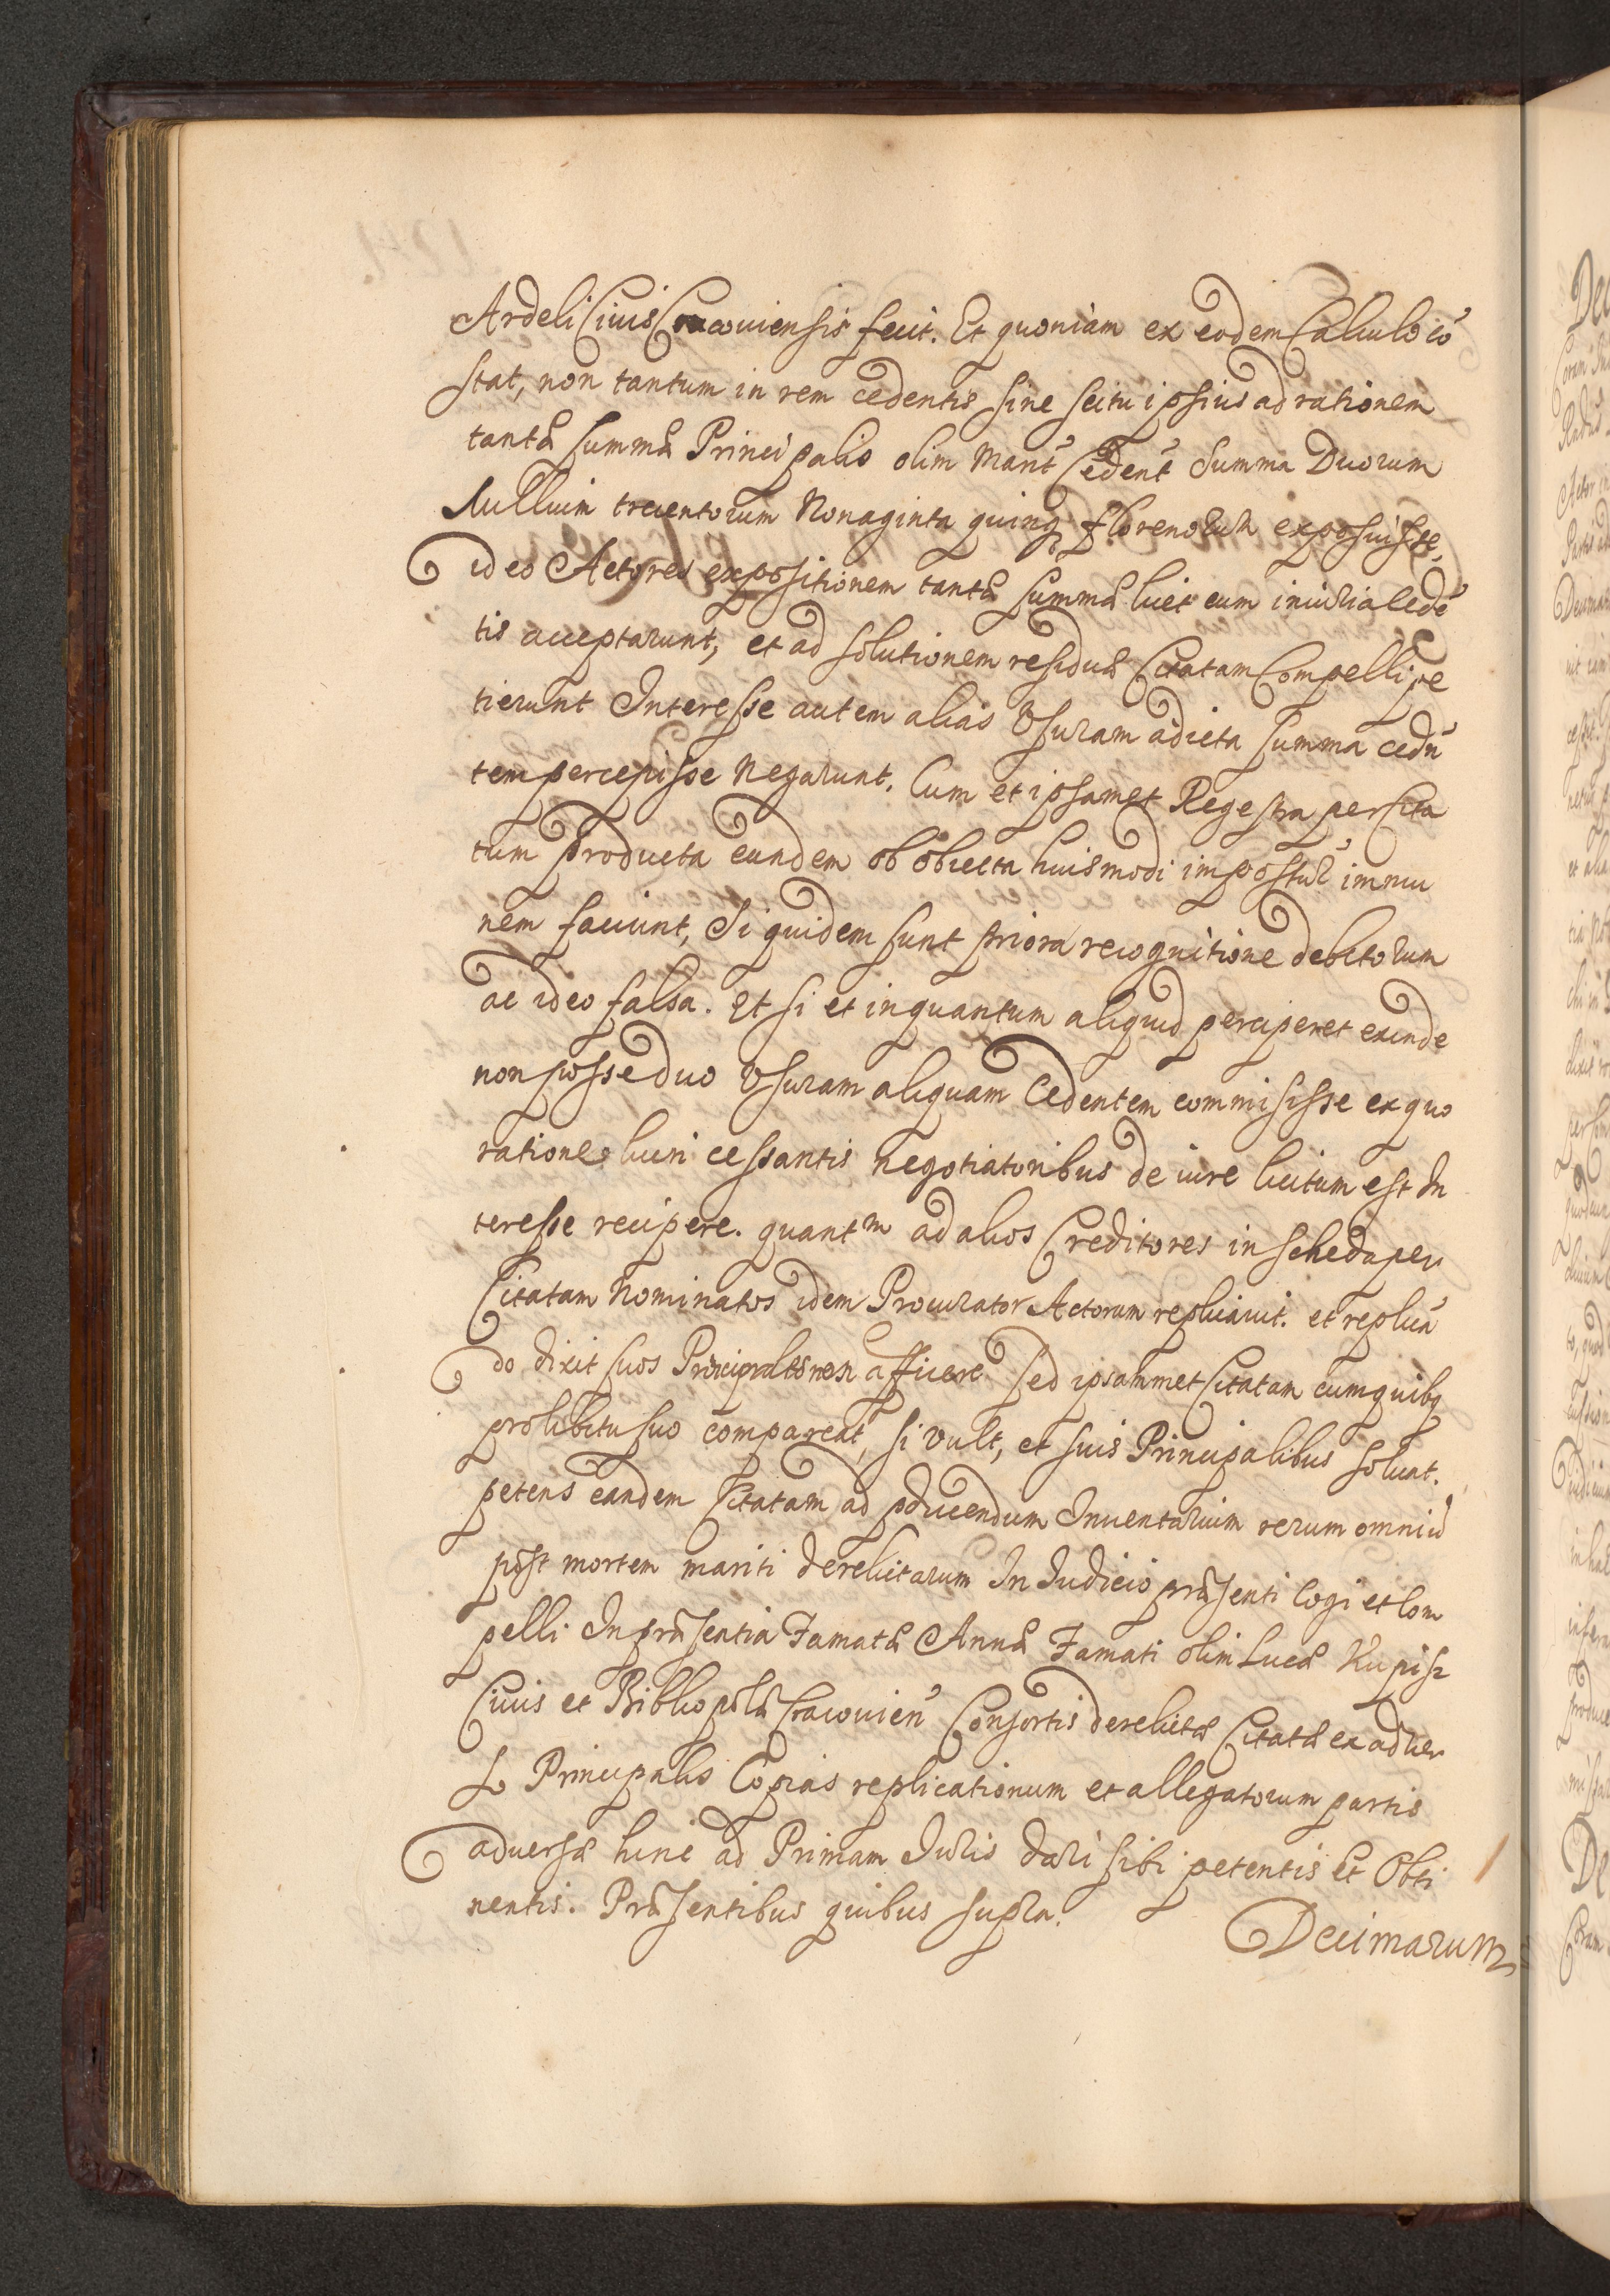 Ardeli Ciuis Cracouiensis fecit. Et quoniam ex eodem Calculo cō
stat, non tantum in rem cedentis sine scitu ipsius ad rationem
tantæ summæ Principalis olim Marit Cedent Summa Duorum
Millium trecentorum Nonaginta quinq florenorum exposuisse,
ideo Actores expositionem tantæ summæ licet cum iniuria Cedē
tis acceptarunt, et ad solutionem residuæ Citatam Compelli pe
tierunt Interesse autem alias Vsuram a dicta summa cedn
tem percepisse Negarunt. Cum et ipsamet Regestra per Cita
tum producta eundem ob obiecta huiusmodi impostur immu
nem faciunt, Si quidem sunt priora recognitione debitorum
ac ideo falsa. Et si et inquantum aliquid perciperet exinde
non posse duo Vsuram aliquam Cedentem commisisse ex quo
ratione lucri cessantis negotiatoribus de iure licitum est In
teresse recipere. quantm ad alios Creditores in scheda per
Citatam Nominatos idem Procurator Actorum replicauit. et replicā
do dixit suos Principales non afficere sed ipsammet Citatam cum quibq
pro libitu suo compareat, si vult, et suis Principalibus soluat.
petens eandem Citatam ad pducendum Inuentarium rerum omniū
post mortem mariti derelictarum In Iudicio præsenti Cogi et Com
pelli In præsentia Famatæ Annæ Famati olim Lucæ Kupisz
Ciuis et Bibliopolæ Cracouien Consortis derelictæ Citatæ ex aduer
so Principalis Copias replicationum et allegatorum partis
aduersæ hinc ad Primam Iuris dari sibi petentis Et Obti
nentis. Præsentibus quibus supra.
Decimarum